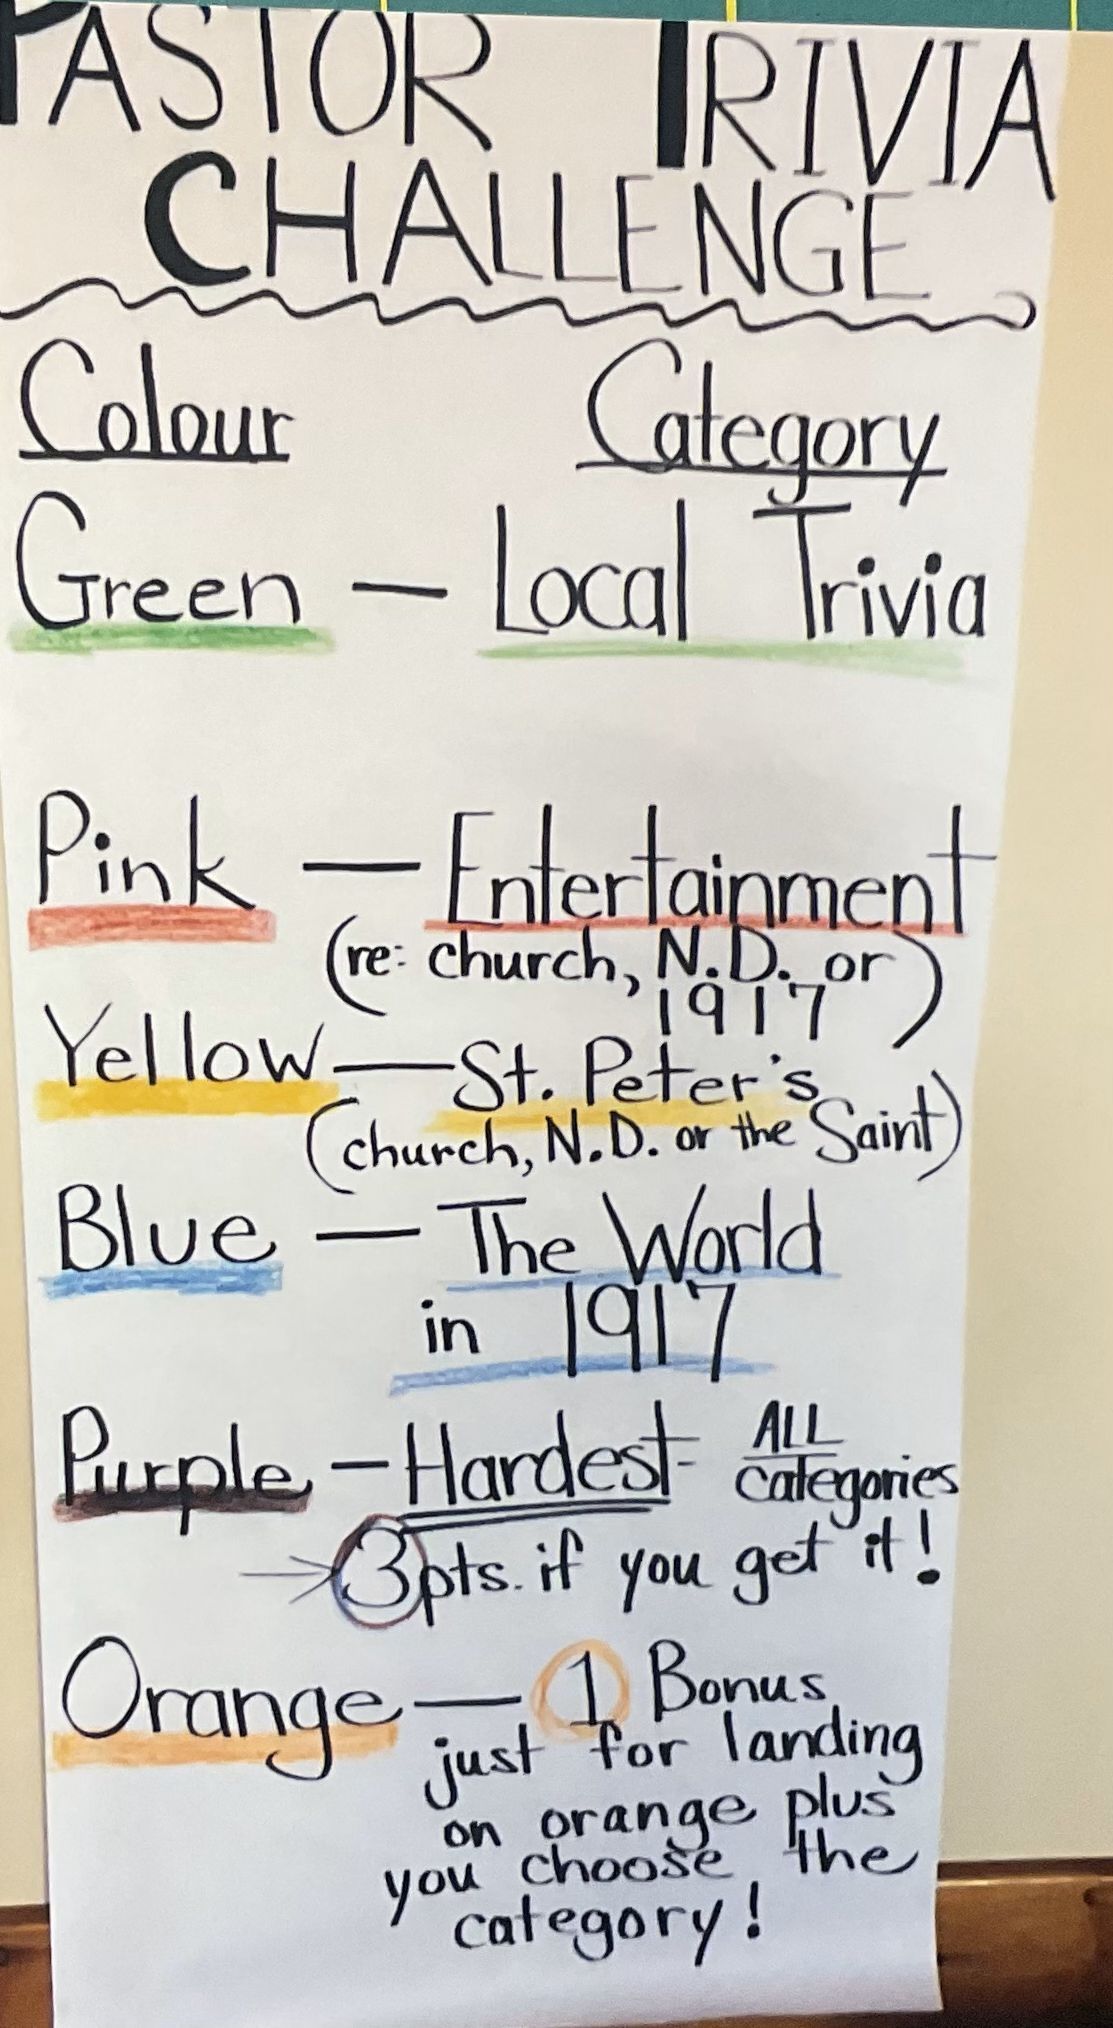 PASTOR TRIVIA
CHALLENGE
Colour Category
Green — Local Trivia
Pink — Entertainment
(re: church, N.D. or
1917)
Yellow — St. Peter's
(church, N.D. or the Saint)
Blue — The World
in 1917
Purple — Hardest - ALL
categories
→ 3pts. if you get it!
Orange — 1 Bonus
just for landing
on orange plus
you choose the
category!